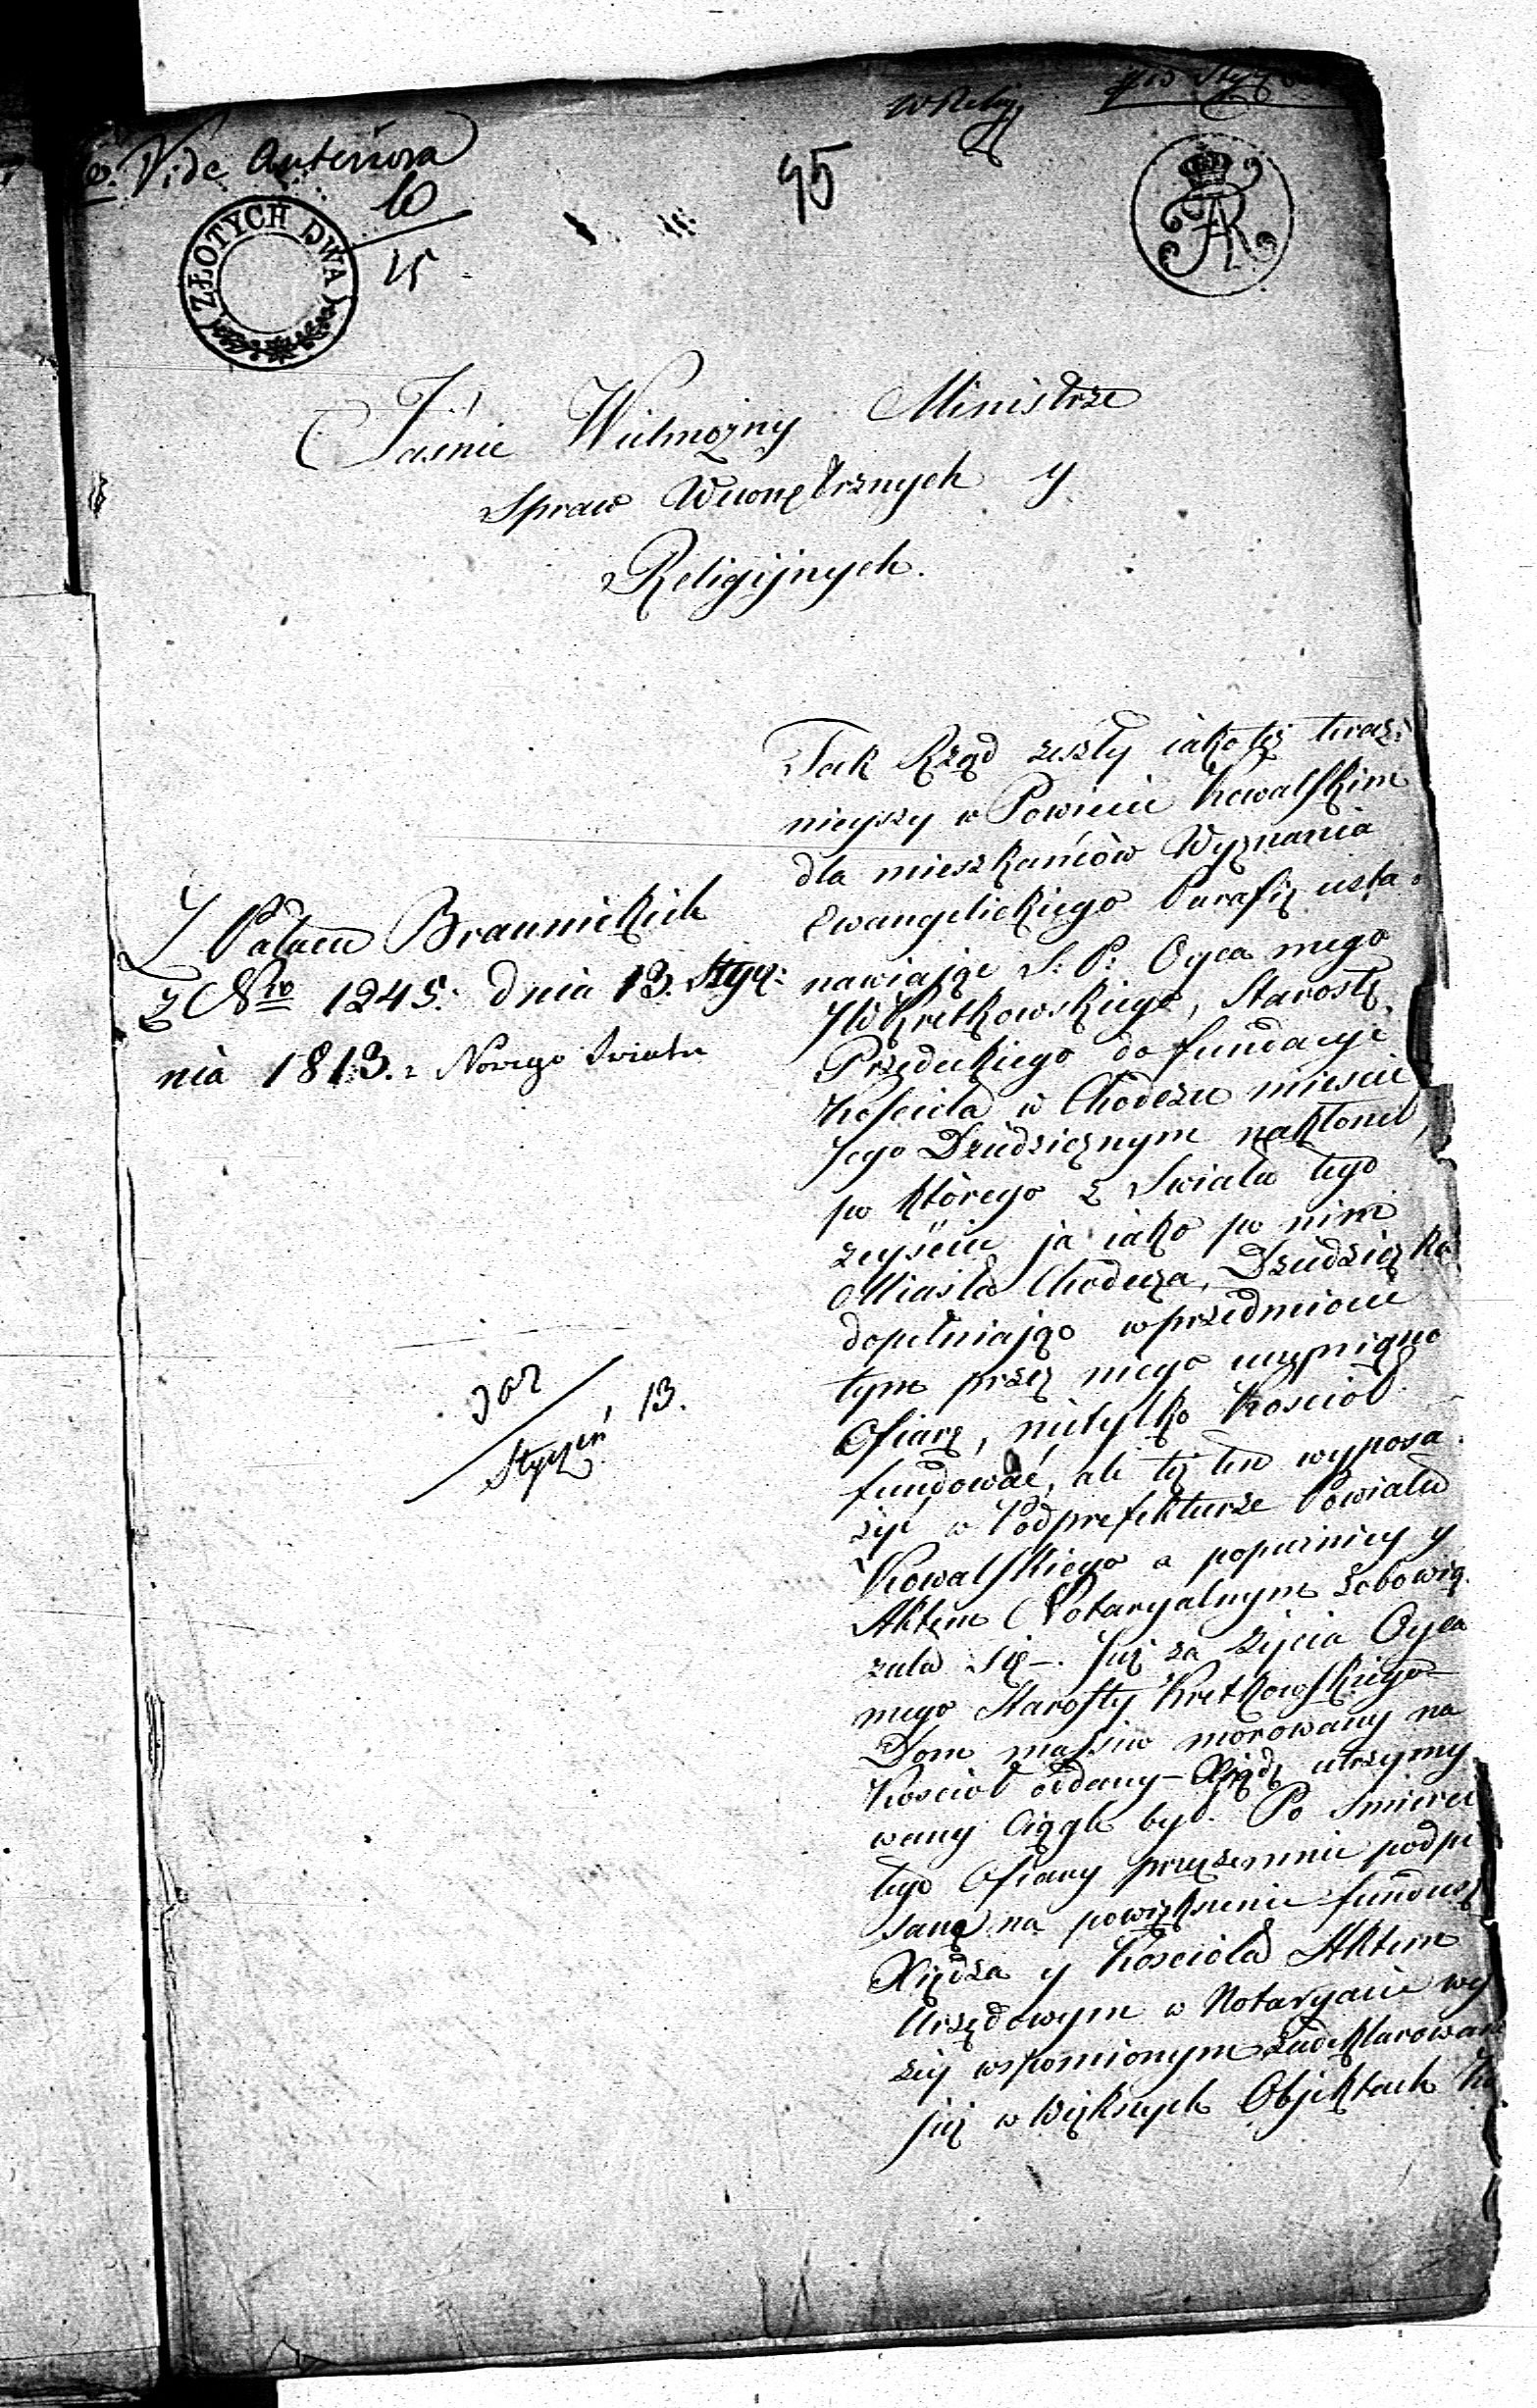 W Relig
Vide Anteriora
10
15
95
ZŁOTYCH DWA
Jaśnie Wielmożny Ministrze
Spraw Wewnętrznych y
Religijnych.
Z Pałacu Braunickich
z Nro 1245. dnia 13. Stycz:
nia 1813. z Nowego Swiatu
Stycz̨eń 13.
Tak Rząd zeszły iakoteż teraz:
nieyszy w Powiecie Kowalskim
dla mieszkańców Wyznania
Ewangelickiego Parafię usta-
nawiaiąc S: P: Oyca mego
JW Kretkowskiego, Starostę
Przedeckiego do fundacyi
Kościoła w Chodczu mieście
Jego Dziedzicznym nakłonił,
po którego z Swiata tego
zeyściu ja iako po nim
Miasta Chodecza, Dziedziczka
dopełniaiąc w przedmiocie
tym przez niego uczynioną
Ofiarę, nietylko Kosciół
fundować, ale też ten wyposa-
żyć w Podprefekturze Powiatu
Kowalskiego a poźniey y
Aktem Notaryalnym zobowią-
zała się -. Już za życia Oyca
mego Starosty Kretkowskiego
Dom massiw morowany na
Kosciół oddany - Xiądz utrzymy
wany ciągle był. Po smierci
tego Ofiary przezemnie podpi
sane na powiększenie fundusz
Xiędza y Kościoła Aktem
Urzędowym w Notaryacie wy
żey wspomionym zadeklarowan
już w większych Objektach